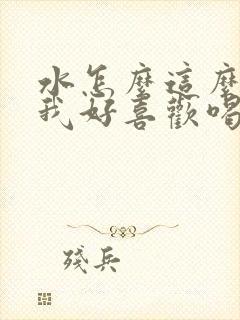 水怎麼這麼
我好喜歡喝
殘兵